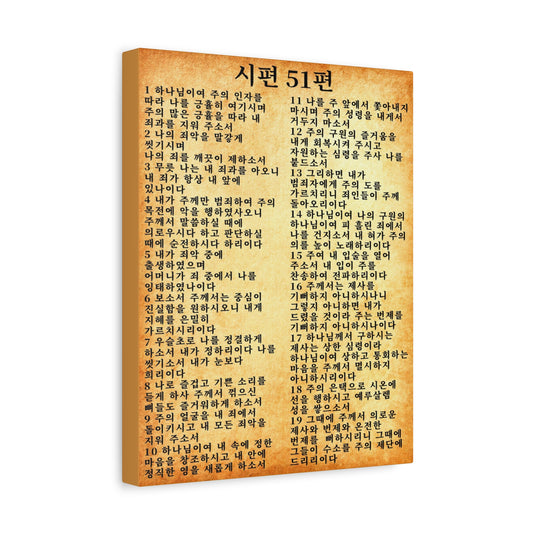 시편 51편
1 하나님이여 주의 인자를
따라 나를 긍휼히 여기시며
주의 많은 긍휼을 따라 내
죄과를 지워 주소서
2 나의 죄악을 말갛게
씻기시며
나의 죄를 깨끗이 제하소서
3 무릇 나는 내 죄과를 아오니
내 죄가 항상 내 앞에
있나이다
4 내가 주께만 범죄하여 주의
목전에 악을 행하였사오니
주께서 말씀하실 때에
의로우시다 하고 판단하실
때에 순전하시다 하리이다
5 내가 죄악 중에
출생하였으며
어머니가 죄 중에서 나를
잉태하였나이다
6 보소서 주께서는 중심이
진실함을 원하시오니 내게
지혜를 은밀히
가르치시리이다
7 우슬초로 나를 정결하게
하소서 내가 정하리이다 나를
씻기소서 내가 눈보다
희리이다
8 나로 즐겁고 기쁜 소리를
듣게 하사 주께서 꺾으신
뼈들도 즐거워하게 하소서
9 주의 얼굴을 내 죄에서
돌이키시고 내 모든 죄악을
지워 주소서
10 하나님이여 내 속에 정한
마음을 창조하시고 내 안에
정직한 영을 새롭게 하소서
11 나를 주 앞에서 쫓아내지
마시며 주의 성령을 내게서
거두지 마소서
12 주의 구원의 즐거움을
내게 회복시켜 주시고
자원하는 심령을 주사 나를
붙드소서
13 그리하면 내가
범죄자에게 주의 도를
가르치리니 죄인들이 주께
돌아오리이다
14 하나님이여 나의 구원의
하나님이여 피 흘린 죄에서
나를 건지소서 내 혀가 주의
의를 높이 노래하리이다
15 주여 내 입술을 열어
주소서 내 입이 주를
찬송하여 전파하리이다
16 주께서는 제사를
기뻐하지 아니하시나니
그렇지 아니하면 내가
드렸을 것이라 주는 번제를
기뻐하지 아니하시나이다
17 하나님께서 구하시는
제사는 상한 심령이라
하나님이여 상하고 통회하는
마음을 주께서 멸시하지
아니하시리이다
18 주의 은택으로 시온에
선을 행하시고 예루살렘
성을 쌓으소서
19 그때에 주께서 의로운
제사와 번제와 온전한
번제를 기뻐하시리니 그때에
그들이 수소를 주의 제단에
드리리이다